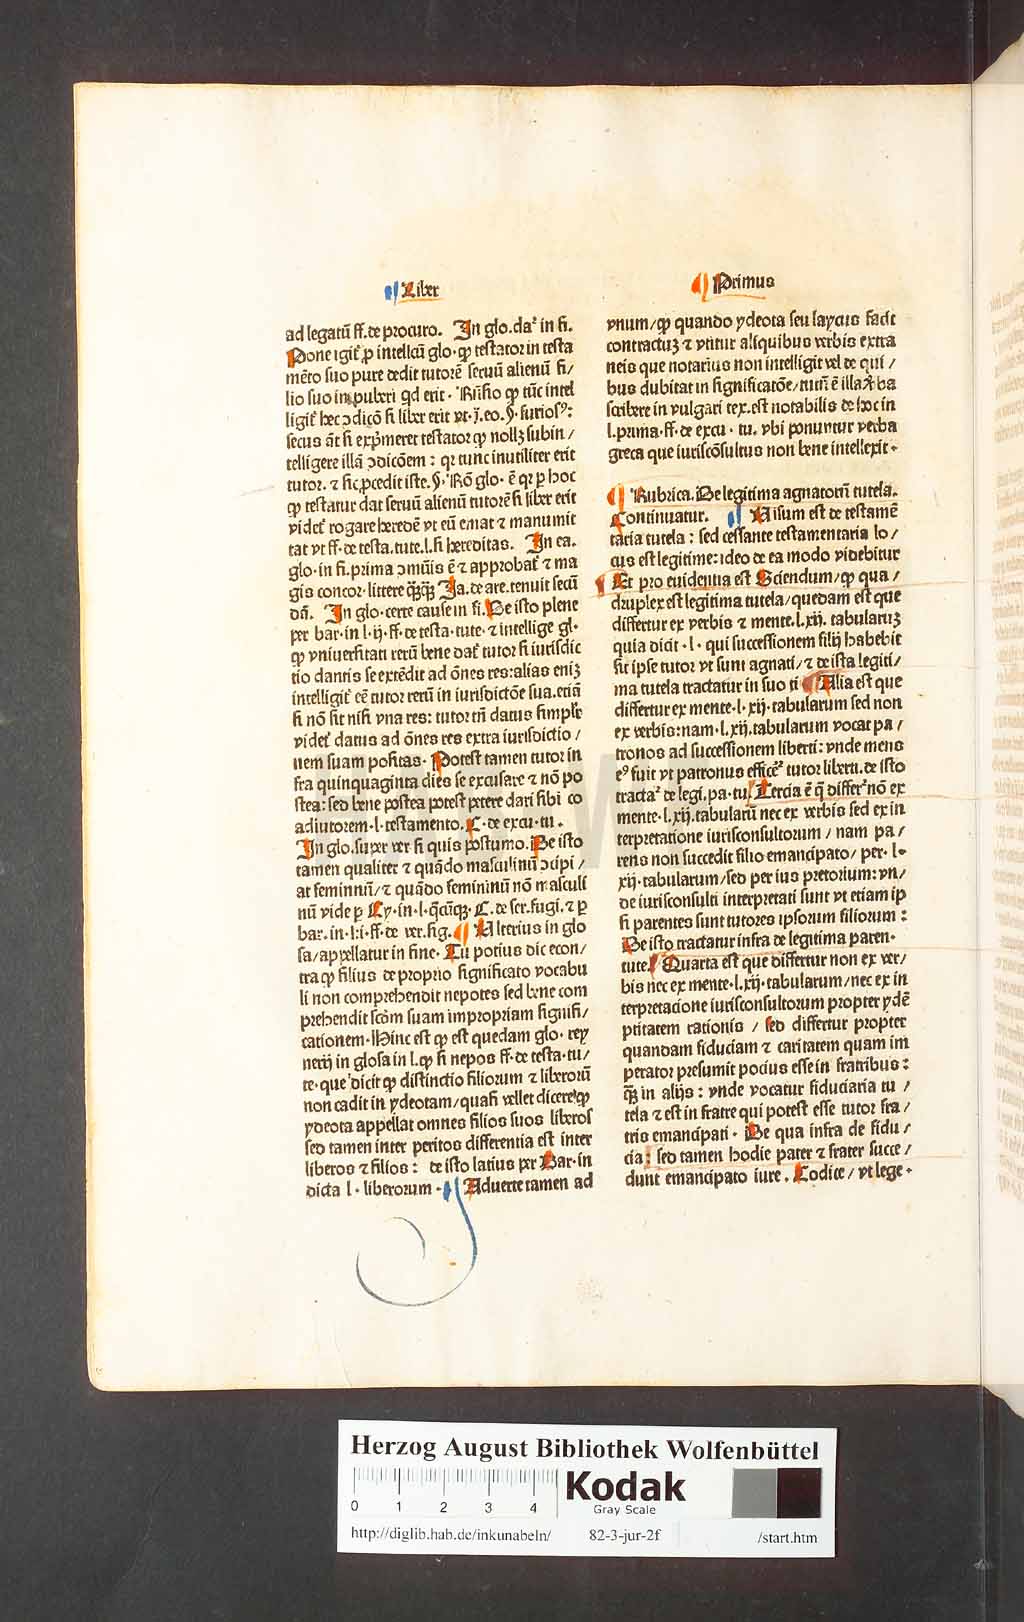 Liber
Primus
ad legatū ff. de procuro. In glo. daꝰ in fi.
Pone igit̄ ꝓ intellcū glo· ꝙ testator in testa
mēto suo pure dedit tutorē seruū alienū fi/
lio suo inpuberi qd erit · Rn̄sio ꝙ tūc intel
ligit̄ hec ↄdicō si liber erit vt · j. eo. §· furiosꝰ:
secus āt si exp̄meret testator ꝙ nollꝫ subin /
telligere illā ↄdicōem : qꝛ tunc inutiliter erit
tutor. ⁊ sic ꝓcedit iste. §· Rō glo· ē qꝛ ꝑ hoc
ꝙ testatur dat seruū alienū tutorē si liber erit
videt̄ rogare heredē vt eū emat ⁊ manumit
tat vt ff. de testa. tute. l. si hereditas. In ea.
glo· in fi. prima ↄmūis ē ⁊ approbat̄ ⁊ ma
gis concor· littere q̄ꝫq̄ꝫ Ja. de are. tenuit secū
dā. In glo· certe cause in fi. De isto plene
per bar· in l· ij· ff· de testa· tute· ⁊ intellige gl·
ꝙ vniuersitati rerū bene dat̄ tutor si iurisdic
tio dantis se extēdit ad ōnes res: alias enīꝫ
intelligit̄ eē tutor rerū in iurisdictōe sua. etiā
si nō sit nisi vna res: tutor tn̄ datus simplr̄
videt̄ datus ad ōnes res extra iurisdictio /
nem suam positas· Potest tamen tutor in
fra quinquaginta dies se excusare ⁊ nō po
stea: sed bene postea potest petere dari sibi co
adiutorem· l· testamento. C· de excu· tu·
In glo. super ver si quis postumo. De isto
tamen qualiter ⁊ quādo masculinū ↄcipi /
at feminnū/ ⁊ quādo femininū nō masculi
nū vide ꝑ Cy· in· l· q̄cūqꝫ· C. de ser. fugi. ⁊ ꝑ
bar. in· l· i· ff· de ver. sig. Alterius in glo
sa/ appellatur in fine· Tu potius dic econ/
tra ꝙ filius de proprio significato vocabu
li non comprehendit nepotes sed bene com
prehendit scōm suam impropriam signifi/
cationem· Hinc est ꝙ est quedam glo· rey
nerij in glosa in l. ꝙ si nepos ff· de testa· tu/
te· que dicit ꝙ distinctio filiorum ⁊ liberorū
non cadit in ydeotam/ quasi vellet dicere ꝙ
ydeota appellat omnes filios suos liberos
sed tamen inter peritos differentia est inter
liberos ⁊ filios : de isto latius per Bar· in
dicta l· liberorum · Aduerte tamen ad
vnum/ ꝙ quando ydeota seu laycus facit
contractuꝫ ⁊ vtitur aliquibus verbis extra
neis que notarius non intelligit vel de qui /
bus dubitat in significatōe/ tūc ē illa ꝟba
scribere in vulgari tex. est notabilis de hoc in
l. prima· ff· de excu · tu. vbi ponuntur verba
greca que iuriscōsultus non bene intellexit·
Rubrica. De legitima agnatorū tutela.
Continuatur. Visum est de testamē
taria tutela : sed cessante testamentaria lo /
cus est legitime: ideo de ea modo videbitur
Et pro euidentia est Sciendum/ ꝙ qua /
druplex est legitima tutela/ quedam est que
differtur ex verbis ⁊ mente. l. xij. tabularuꝫ
quia dicit · l · qui successionem filij habebit
sit ipse tutor vt sunt agnati/ ⁊ de ista legiti/
ma tutela tractatur in suo ti Alia est que
differtur ex mente· l· xij· tabularum sed non
ex verbis: nam· l. xij. tabularum vocat pa /
tronos ad successionem liberti: vnde mens
eꝰ fuit vt patronus efficeꝰ tutor liberti. de isto
tractaꝰ de legi. pa· tu. Tercia ē q̄ differꝰ nō ex
mente· l. xij. tabularū nec ex verbis sed ex in
terpretatione iurisconsultorum / nam pa /
rens non succedit filio emancipato/ per· l·
xij· tabularum/ sed per ius pretorium: vn/
de iurisconsulti interpretati sunt vt etiam ip
si parentes sunt tutores ipsorum filiorum :
De isto tractatur infra de legitima paren·
tute. Quarta est que differtur non ex ver/
bis nec ex mente· l· xij· tabularum/ nec ex in
terpretacione iurisconsultorum propter ydē
ptitatem rationis / sed differtur propter
quandam fiduciam ⁊ caritatem quam im
perator presumit pocius esse in fratribus:
q̄ꝫ in alijs : vnde vocatur fiduciaria tu /
tela ⁊ est in fratre qui potest esse tutor fra /
tris emancipati · De qua infra de fidu /
cia: sed tamen hodie pater ⁊ frater succe /
dunt emancipato iure . Codice / vt lege·
Herzog August Bibliothek Wolfenbüttel
0 1 2 3 4
Kodak
Gray Scale
http://diglib.hab.de/inkunabeln/ 82-3-jur-2f /start.htm